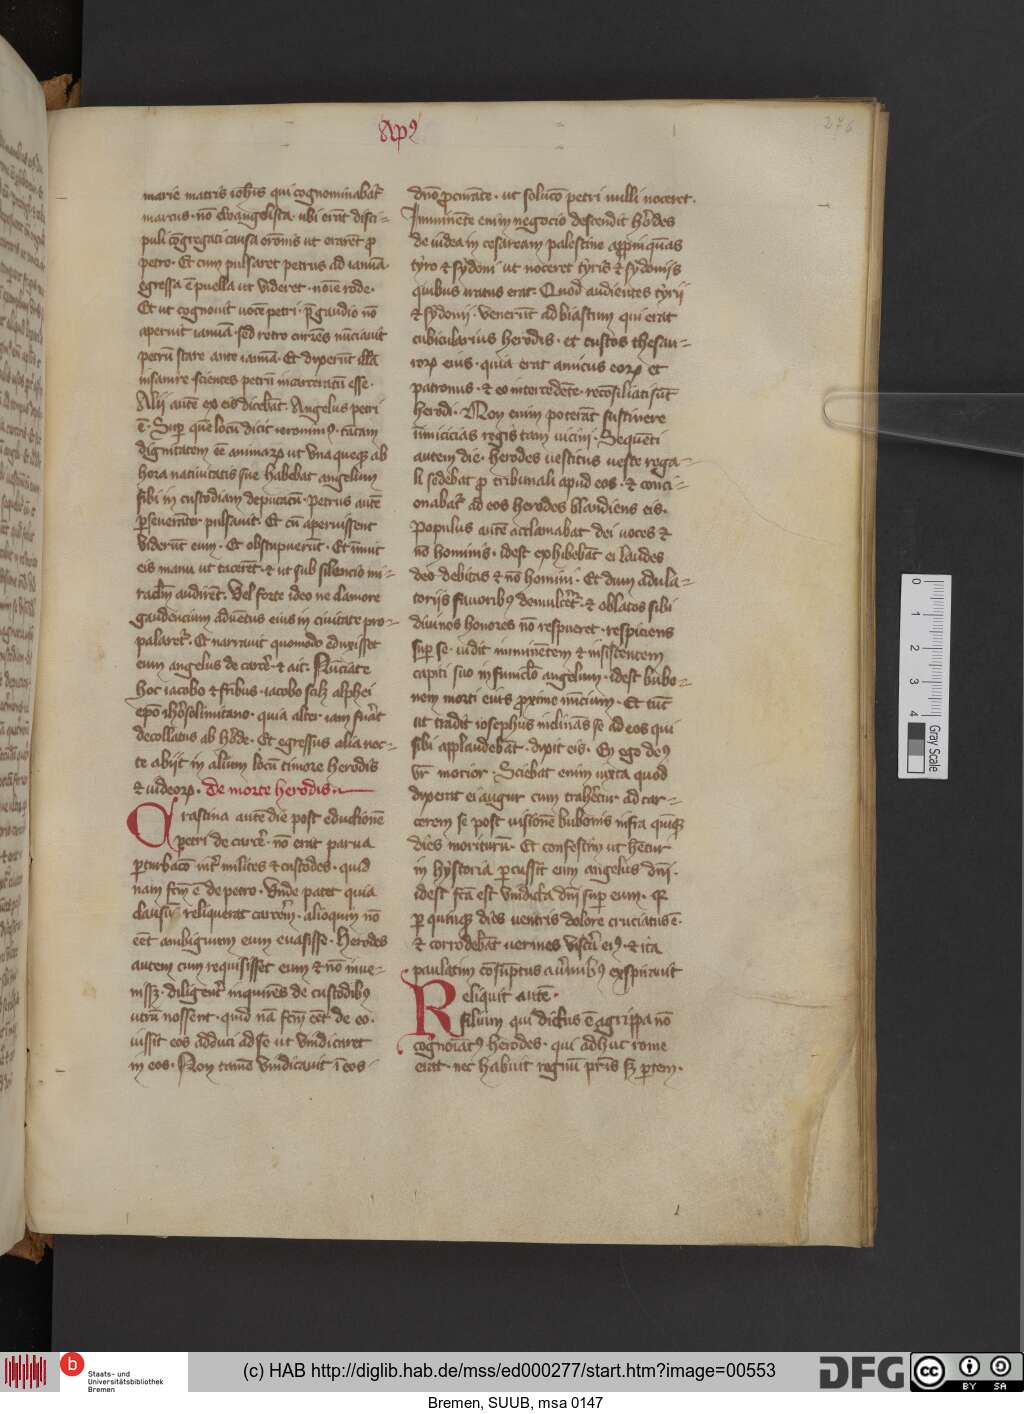 Apꝰ
276
marie matris ioh̄is qui cognominabat᷑
marcus · nō ewangelista · vbi erāt disci-
puli ꝯgregati causa or̄onis ut orarēt ꝓ
petro · Et cum pulsaret petrus ad ianuā
egressa ē puella ut videret · noīe rode ·
Et ut cognouit vocē petri · p̄ gaudio nō
aperuit ianuā · sed retro currēs nūciauit
petrū stare ante ianuā · Et dixerūt illā
insanire · scientes petrū incarceratū esse ·
Alij autē ex eis dicebāt · Angelus petri
ē · Suꝑ quē locū dicit ieronimꝰ · tātam
dignitatem eē animaꝝ ut vna queqꝫ ab
hora natiuitatis sue habebat angelum
sibi in custodiam deputatū · Petrus autē
ꝑseueranter pulsauit · Et cū aperuissent
viderūt eum · Et obstupuerūt · Et īnuit
eis manu ut tacerēt · et ut sub silencio mi-
rac̄lm audirēt · Vel forte ideo ne clamore
gaudencium aduētus eius in ciuitate pro-
palaret᷑ · Et narrauit quomodo eduxisset
eum angelus de carc̄e · et ait · Nūciate
hoc iacobo et fr̄ibus · iacobo scilꝫ alphei
ep̄o ih̄osolimitano · quia alter iam fuāt
decollatus ab h̄ode · Et egressus alia noc-
te abijt in aliūm locū timore herodis
et iudeoꝝ · De morte herodis ·
Crastina autē die post eductionē
petri de carc̄e · nō erat parua
ꝑturbac̄o int᷑ milites et custodes · quid
nam fc̄m ē de petro · Vnde patet quia
clausū reliquerat carcerē · alioquin nō
eēt ambiguum eum euasisse · Herodes
autem cum requisisset eum et nō inue-
nissꝫ · diligent᷑ inquirēs de custodibꝰ
utrū nossent · quid nā fc̄m eēt de eo ·
iussit eos adduci ad se ut vindicaret
in eos · Non tamē vindicauit ī eos ·
dn̄o ꝓcurāte · ut soluc̄o petri nulli noceret ·
Imminēte enim negocio descendit h̄odes
de iudea in cesaream palestine aꝓpinquās
tyro et sydoni ut noceret tyris et sydonijs
quibus iratus erat · Quod audientes tyrij
et sydonij · venerūt ad blastum qui erat
cubicularius herodis · et custos thesau-
roꝝ eius · quia erat amicus eoꝝ et
patronus · et eo intercedēte · recōsiliati sūt
herodi · Non enim poterāt sustinere
īnimicicias regis tam vicini · Sequēti
autem die · herodes vestitus veste rega-
li sedebat ꝓ tribunali apud eos · et conci-
onabat᷑ ad eos herodes blandiens eis ·
Populus autē acclamabat dei voces et
nō hominis · idest exhibebāt ei laudes
deo debitas et nō homini · Et dum adula-
torijs fauoribꝰ demulcet᷑ · et oblatos sibi
diuinos honores nō respueret · respiciens
suꝑ se · uidit iminētem et insistentem
capiti suo in funic̄lo angelum · idest bubo-
nem morti eius ꝓxime nūcium · Et tūc
ut tradit iosephus inclinās se ad eos qui
sibi applaudebāt · dixit eis · En ego deꝰ
vr̄ morior · Sciebat enim iuxta quod
dixerat ei augur cum trahēet᷑ ad car-
cerem se post visionē bubonis infra quīqꝫ
dies moriturū · Et confestim ut hētur
in hystoria ꝑcussit eum angelus dn̄i ·
idest fc̄a est vindicta dn̄i suꝑ eum · Et
ꝑ quinqꝫ dies ventris dolore cruciatus ē ·
et corrodebāt vermes visc̄a eiꝰ · et ita
paulatim cōsūptus a v̄mibꝰ exspirauit
Reliquit autē ·
filium qui dictus ē agrippa nō
cogn̄oīatꝰ herodes · qui adhuc rome
erat · nec habuit regnū pr̄is sꝫ ꝑtem ·
0 1 2 3 4
Gray Scale
b
Staats- und
Universitätsbibliothek
Bremen
(c) HAB http://diglib.hab.de/mss/ed000277/start.htm?image=00553
DFG
cc BY SA
Bremen, SUUB, msa 0147